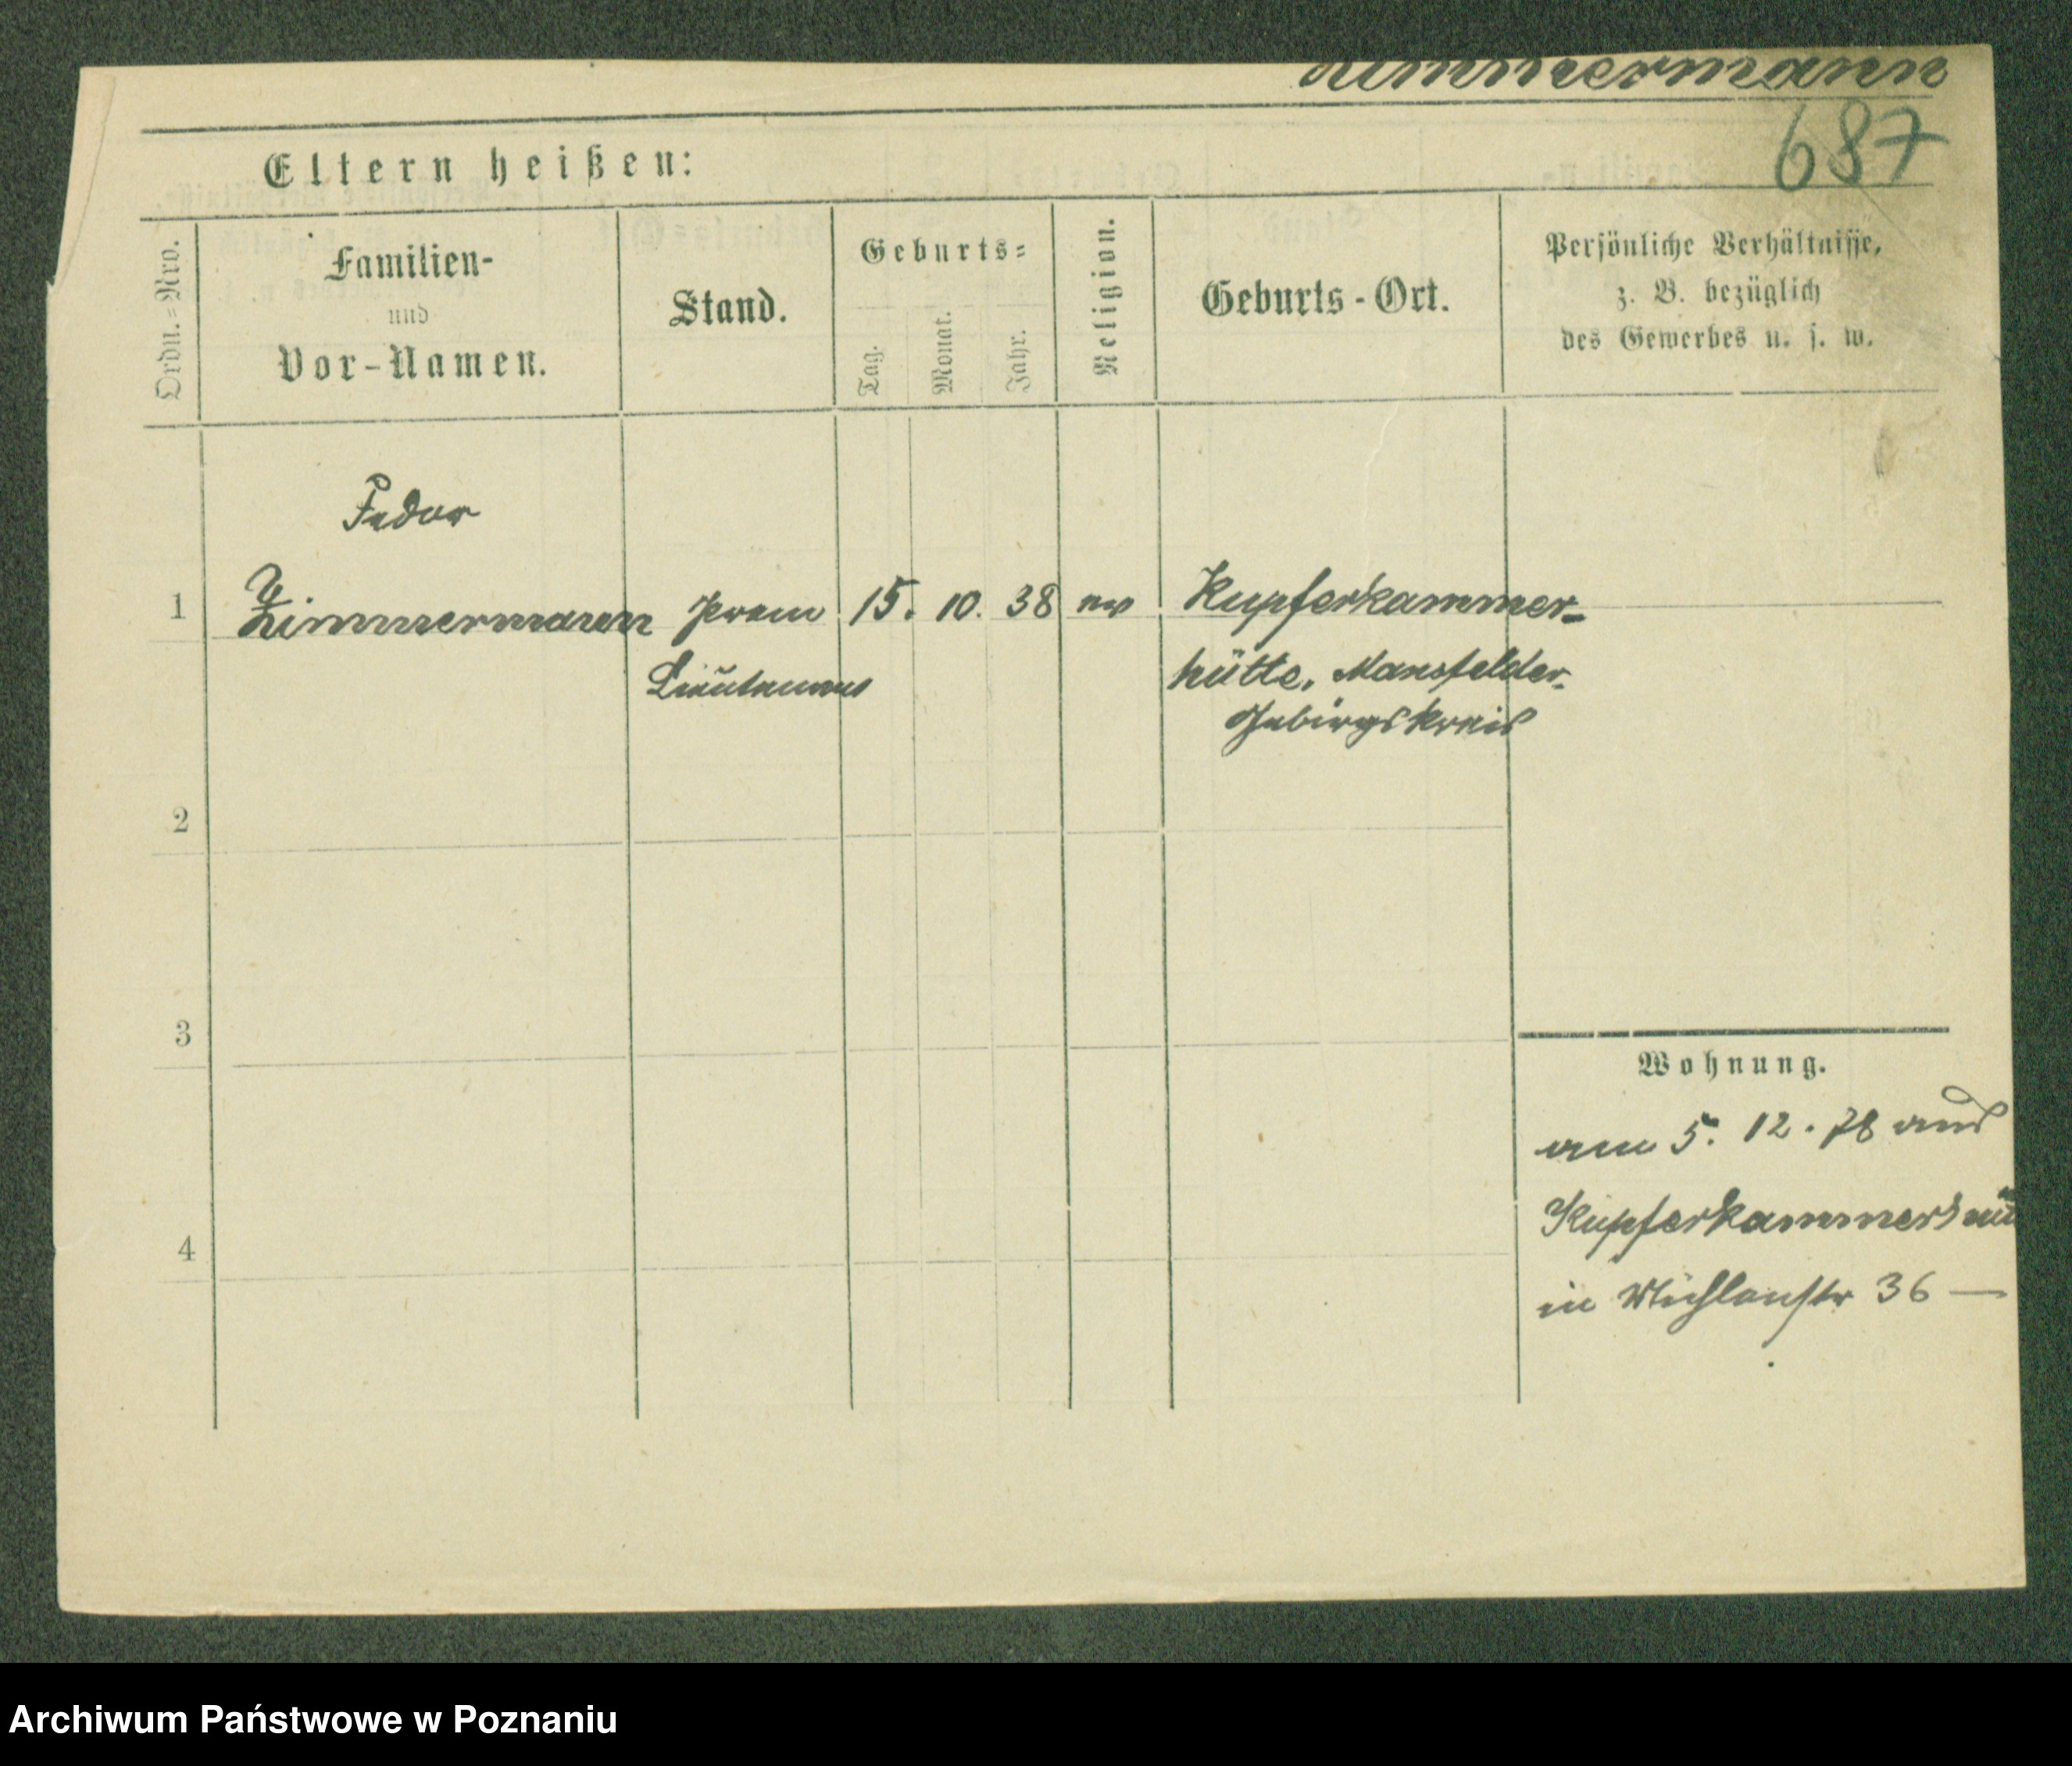 Zimmermann
687
Eltern heißen:
Ordn.=Nro.
Familien-
und
Vor-Namen.
Stand.
Geburts=
Tag.
Monat.
Jahr.
Religion.
Geburts-Ort.
Persönliche Verhältnisse,
z. B. bezüglich
des Gewerbes u. s. w.
Fedor
1 Zimmermann Prem 15. 10. 38 ev Kupferkammer-
Lieutenant hütte, Mansfelder-
Gebirgskreis
2
3
Wohnung.
am 5. 12. 78 aus
Kupferkammerhü
4
in Mühlenstr 36 —
Archiwum Państwowe w Poznaniu